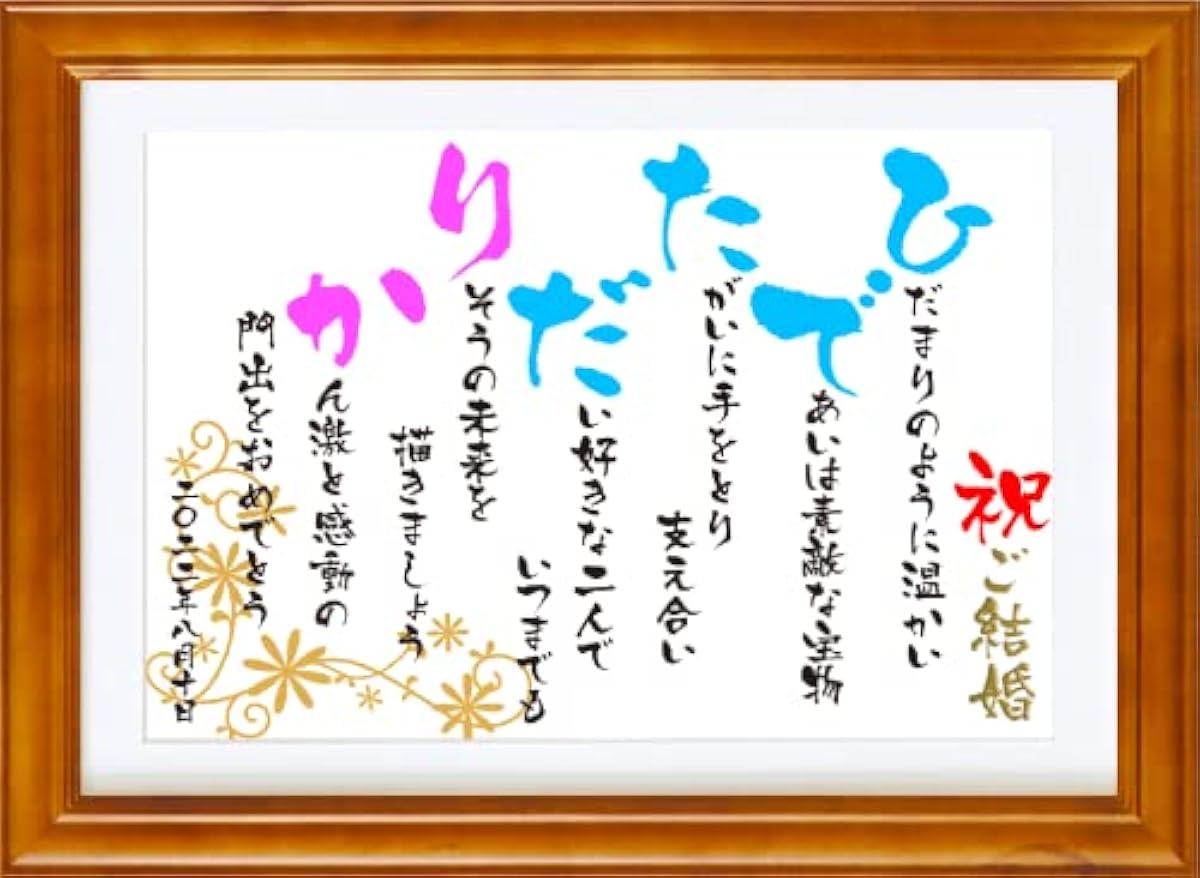 祝ご結婚
ひだまりのように温かい
であいは素敵な宝物
たがいに手をとり
支え合い
だい好きな二人で
いつまでも
りそうの未来を
描きましょう
かん激と感動の
門出をおめでとう
二〇二二年八月十日